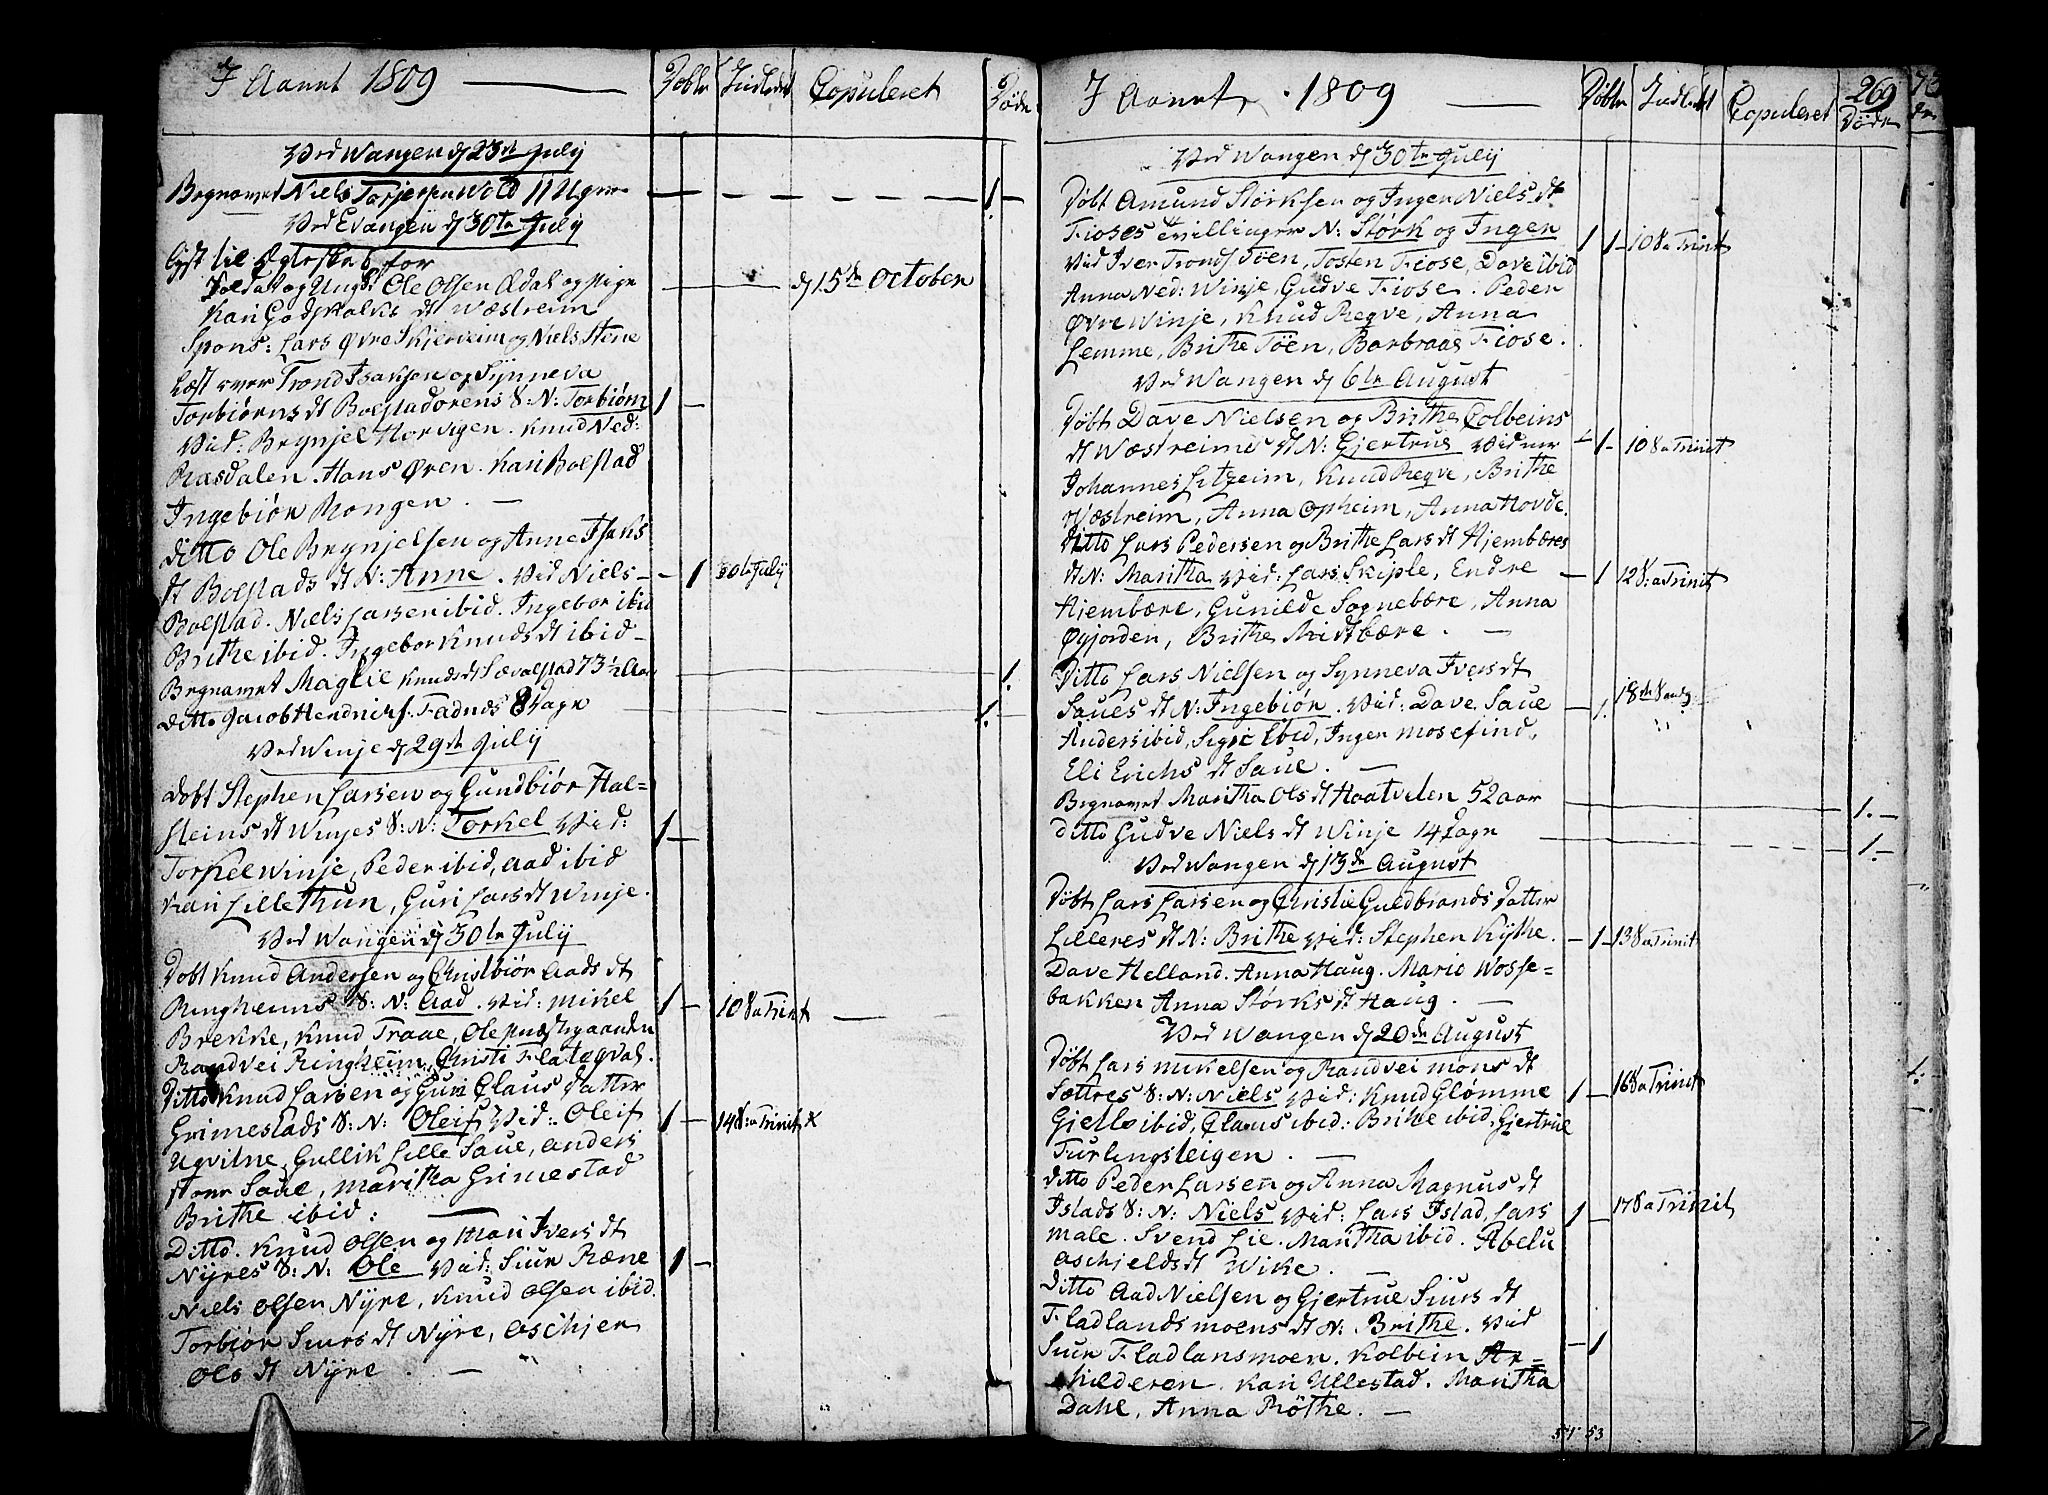 I Aaret 1809 Døbte Indledet Copuleret Døde
Ved Wangen d 23de July
Begravet Niels Torjersen Wold 11 Uger 1
Ved Evangen d 30te July
Lyst til Ægteskab for
Soldat og Ungk Ole Olsen Ædal og Pige d 15de October
Kari Godskalks dt Wæstreim
Spons: Lars Øvre Skjerveim og Niels Stene
Læst over Trond Isaksen og Synneva
Torbiørns dt Bolstadørens S: N: Torbiørn 1
Vid: Brynjel Horvigen. Knud Ned:
Rasdalen. Hans Øren. Kari Bolstad
Ingebiør Rongen.
Ditto Ole Brynjelsen og Anne Isaks
dt Bolstads dt N: Anne. Vid Niels 1 30te July
Bolstad. Niels Larsen ibid. Ingebor ibid
Brithe ibid. Ingebor Knuds dt ibid
Begravet Maglie Knuds dt Sævalstad 73 1/2 Aar 1.
ditto Jacob Hendriks. Fadnes 8 Dage 1.
Ved Winje d 29de July
Døbt Stephen Larsen og Gundbiør Hal=
steins dt Winjes S: N: Torkel Vid: 1
Torkel Winje, Peder ibid, Aad ibid
Kari Lillethun, Guri Lars dt Winje.
Ved Wangen d 30te July
Døbt Knud Andersen og Christbiør Aads dt
Ringheims S: N: Aad. Vid: Mikel 1 10 S a Trinit
Brekke, Knud Traae, Ole Præstegaarden
Randvei Ringheim, Christi Flateqval.
Ditto Knud Larsen og Guri Claus Datter
Grimestads S: N: Oleif Vid: Oleif 1 14 S: a Trinit x
Ugvitne, Gullik Lille Saue, Anders
store Saue, Maritha Grimestad
Brithe ibid:
Ditto. Knud Olsen og Mari Ivers dt
Nyres S: N: Ole Vid: Siur Ræne 1
Niels Olsen Nyre, Knud Olsen ibid.
Torbiør Siurs dt Nyre, Aschjer
Ols dt Nyre.
I Aaret 1809 Døbte Indledt Copuleret 269 Døde
Ved Wangen d 30te July
Døbt Amund Størksen og Inger Niels dt
Fioses Tvillinger N: Størk og Inger 1 1 10 S a Trinit
Vid Iver Tronds Töen, Tosten Fiose, Dave ibid
Anna Ned: Winje, Gudve Fiose. Peder
Øvre Winje, Knud Reqve, Anna
Lemme, Brithe Töen, Barbraae Fiose.
Ved Wangen d 6te August
Døbt Dave Nielsen og Brithe Colbeins
dt Wæstreims dt N: Gjertrue Vidner 1 10 S a Trinit
Johannes Litzeim, Knud Reqve, Brithe
Wæstreim, Anna Opheim, Anna Hovde.
Ditto Lars Pedersen og Brithe Lars dt Hjembæres
dt N: Maritha Vid: Lars Skiple, Endre 1 12 S: a Trinit
Hjembære, Gunilde Sognebære, Anna
Øyjorden, Brithe Midtbære.
Ditto Lars Nielsen og Synneva Ivers dt
Saues dt N: Ingebiør. Vid: Dave Saue 1. 18de S
Anders ibid, Sigri ibid, Inger Mosefind,
Eli Erichs dt Saue.
Begravet Maritha Ols dt Haatvelen 52 aar 1.
ditto Gudve Niels dt Winje 14 Dage 1.
Ved Wangen d 13de August
Døbt Lars Larsen og Christie Guldbrands Datter
Lilleres dt N: Brithe Vid: Stephen Kythe. 1 13 S a Trinit
Dave Helland. Anna Haug. Mario Vosse=
bakken Anna Størks dt Haug.
Ved Wangen d 20de August
Døbt Lars Mikelsen og Randvei Mons dt
Sættres S: N: Niels Vid: Knud Glømme 1 16 S a Trinit
Gjelle ibid, Claus ibid: Brithe ibid, Gjertrue
Furlingsleigen.
ditto Peder Larsen og Anna Magnus dt
Istads S: N: Niels Vid: Lars Istad, Lars 1 17 S a Trinit
Male. Svend Lie. Maritha ibid. Abelu
Aschjelds dt Wike.
Ditto Aad Nielsen og Gjertrue Siurs dt
Fladlands moens dt N: Brithe. Vid 1
Siur Fladlansmoen. Kolbein Ar=
hilderen. Kari Ullestad. Maritha
Dahl, Anna Röthe.
51 53